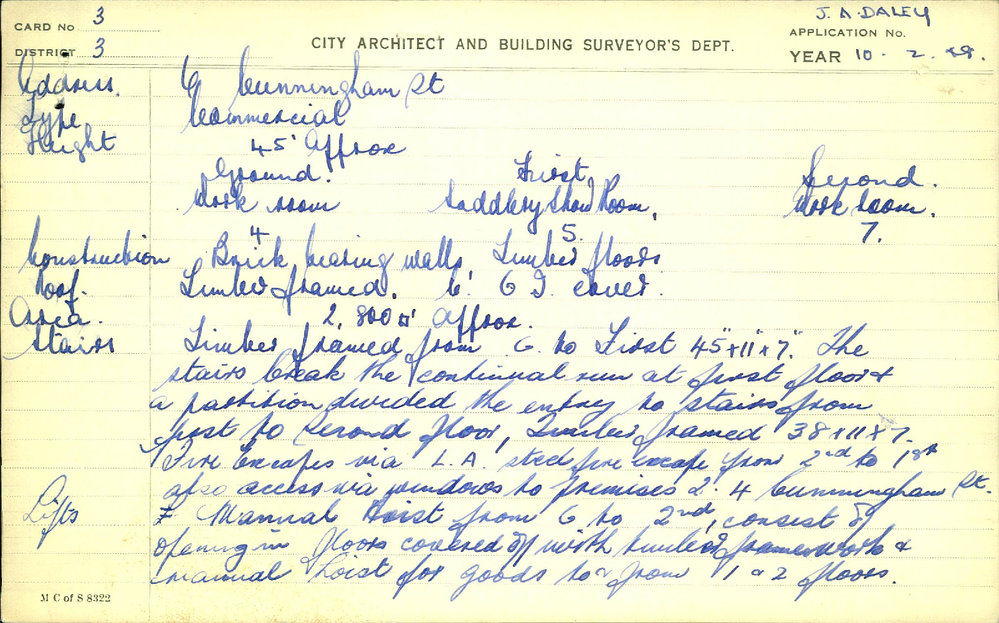 CARD No 3
J. A. DALEY
APPLICATION No.
DISTRICT 3
CITY ARCHITECT AND BUILDING SURVEYOR'S DEPT.
YEAR 10. 2. 48.
Address. 6 Cunningham St
Type Commercial
Height 45' Approx
Ground. First. Second.
Work room Saddlery Show Room. Work Room.
4 5. 7.
Construction Brick bearing walls, Timber floors.
Roof. Timber framed. C. G I. cover.
Area. 2,800 □' approx.
Stairs Timber framed from G. to First 45"x11x7". The
stairs break the continual run at first floor &
a partition divided the entry to stairs from
first to second floor, Timber framed 38x11x7.
Fire Escapes via L.A. steel fire escape from 2nd to 1st
also access via windows to premises 2. 4 Cunningham St.
Lifts Manual Hoist from G to 2nd, consist of
opening in floors covered off with timber framework &
manual hoist for goods to & from 1 & 2 floors.
M C of S 8322